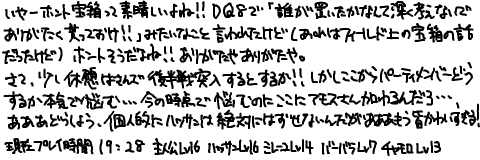 いやーホント宝箱って素晴しいよね!! DQ8で「誰が置いたかなんて深く考えないで
ありがたく貰っておけ!!」みたいなこと言われたけど(あれはフィールド上の宝箱の話
だったけど) ホントそうだよね!! ありがたやありがたや。
さて、少し休憩はさんで後半戦突入するとするか!! しかしここからパーティメンバーどう
するか本気で悩む…今の時点で悩むのにここにテリーさん加わるんだろ…、
あああどうしよう、個人的にハッサンは絶対にはずせないんだがあああもう皆かわいすぎる!
現在プレイ時間 19:28 主人公Lv16 ハッサンLv16 ミレーユLv14 バーバラLv7 チャモロLv13